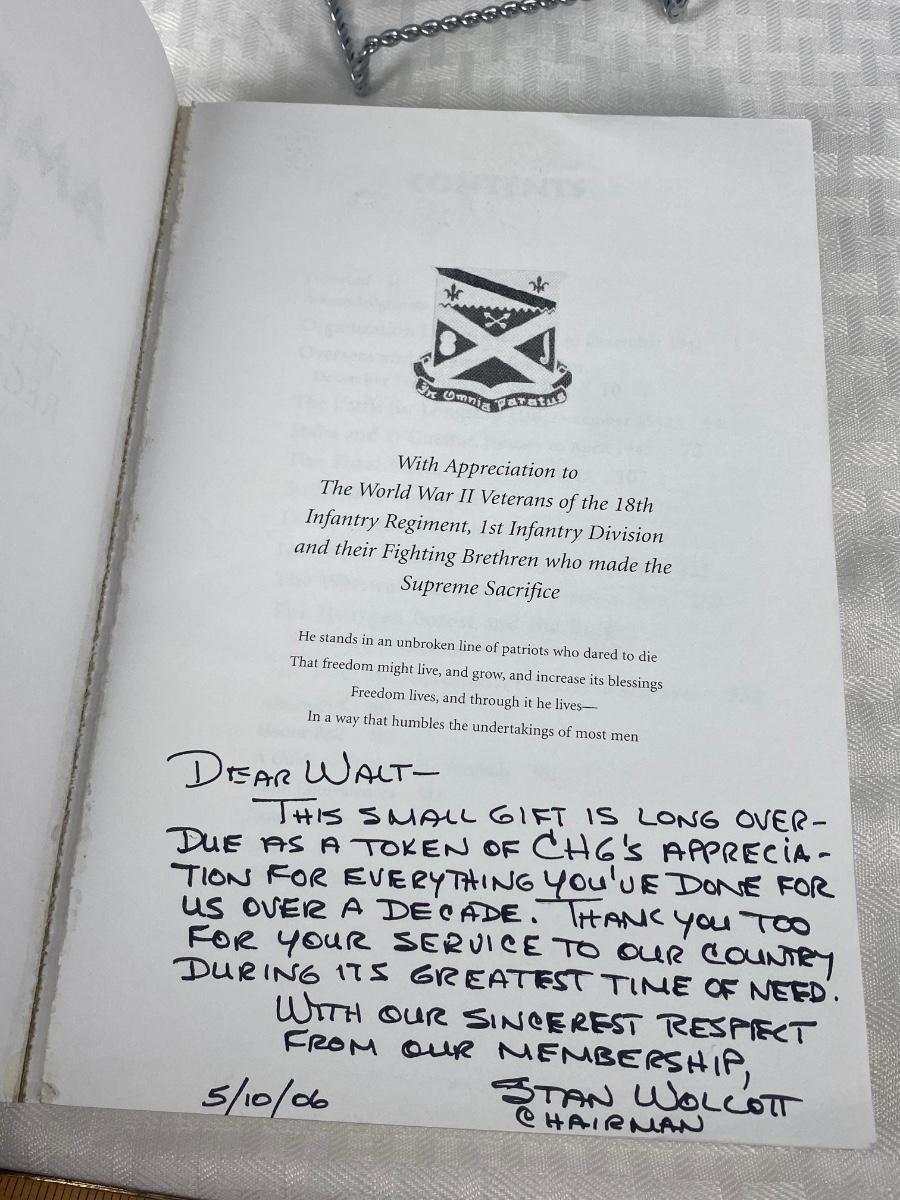 In Omnia Paratus
With Appreciation to
The World War II Veterans of the 18th
Infantry Regiment, 1st Infantry Division
and their Fighting Brethren who made the
Supreme Sacrifice
He stands in an unbroken line of patriots who dared to die
That freedom might live, and grow, and increase its blessings
Freedom lives, and through it he lives—
In a way that humbles the undertakings of most men
DEAR WALT—
THIS SMALL GIFT IS LONG OVER-
DUE AS A TOKEN OF CHG'S APPRECIA-
TION FOR EVERYTHING YOU'VE DONE FOR
US OVER A DECADE. THANK YOU TOO
FOR YOUR SERVICE TO OUR COUNTRY
DURING ITS GREATEST TIME OF NEED.
WITH OUR SINCEREST RESPECT
FROM OUR MEMBERSHIP,
5/10/06 STAN WOLCOTT
CHAIRMAN